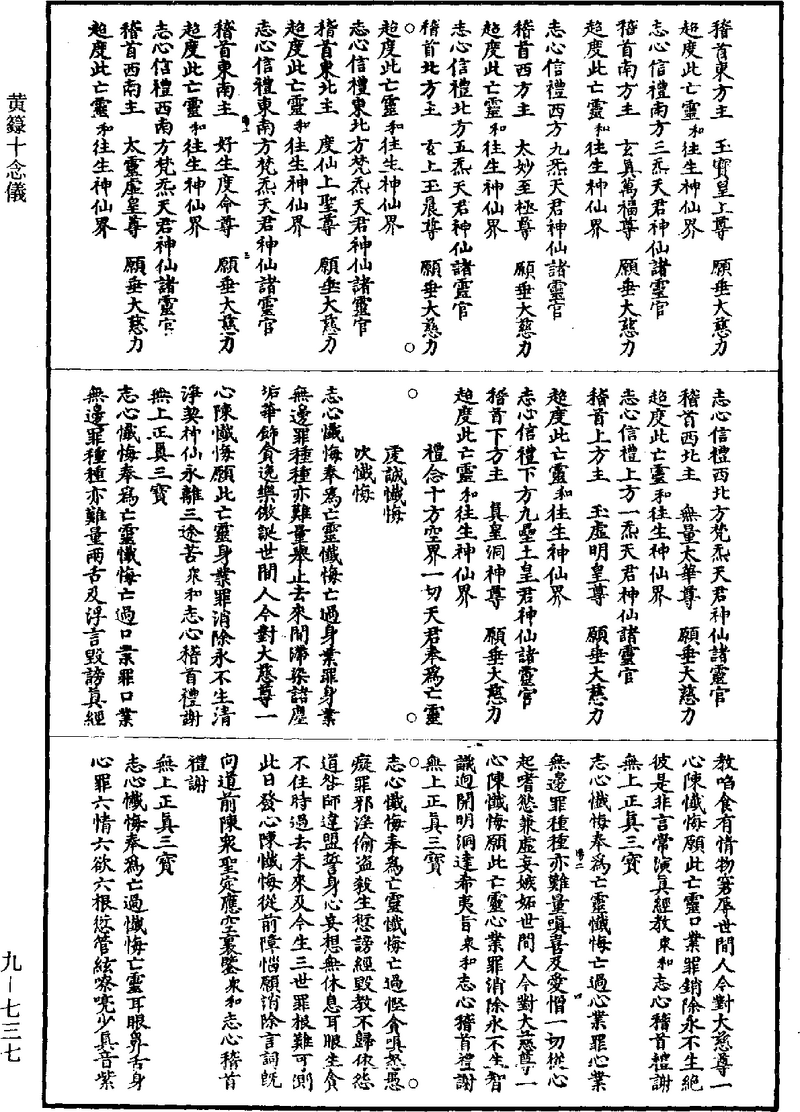 黄籙十念儀
稽首東方主　玉寶皇上尊　願垂大慈力
超度此亡靈和往生神仙界
志心信禮南方三炁天君神仙諸靈官
稽首南方主　玄真萬福尊　願垂大慈力
超度此亡靈和往生神仙界
志心信禮西方九炁天君神仙諸靈官
稽首西方主　太妙至極尊　願垂大慈力
超度此亡靈和往生神仙界
志心信禮北方五炁天君神仙諸靈官
稽首北方主　玄上玉晨尊　願垂大慈力
超度此亡靈和往生神仙界
志心信禮東北方梵炁天君神仙諸靈官
稽首東北主　度仙上聖尊　願垂大慈力
超度此亡靈和往生神仙界
志心信禮東南方梵炁天君神仙諸靈官
稽首東南主　好生度命尊　願垂大慈力
超度此亡靈和往生神仙界
志心信禮西南方梵炁天君神仙諸靈官
稽首西南主　太靈虛皇尊　願垂大慈力
超度此亡靈和往生神仙界
志心信禮西北方梵炁天君神仙諸靈官
稽首西北主　無量太華尊　願垂大慈力
超度此亡靈和往生神仙界
志心信禮上方一炁天君神仙諸靈官
稽首上方主　玉虛明皇尊　願垂大慈力
超度此亡靈和往生神仙界
志心信禮下方九壘土皇君神仙諸靈官
稽首下方主　真皇洞神尊　願垂大慈力
超度此亡靈和往生神仙界
禮念十方空界一切天君奉為亡靈
虔誠懺悔
吹懺悔
志心懺悔奉為亡靈懺悔亡過身業罪身業
無邊罪種種亦難量舉止去來間滯染諸塵
垢華飾貪逸樂傲誕世間人今對大慈尊一
心陳懺悔願此亡靈身業罪消除永不生清
淨契神仙永離三途苦衆和志心稽首禮謝
無上正真三寶
志心懺悔奉為亡靈懺悔亡過口業罪口業
無邊罪種種亦難量兩舌及浮言毀謗真經
教啗食有情物窮辱世間人今對大慈尊一
心陳懺悔願此亡靈口業罪銷除永不生絕
彼是非言常演真經教衆和志心稽首禮謝
無上正真三寶
志心懺悔奉為亡靈懺悔亡過心業罪心業
無邊罪種種亦難量嗔喜及愛憎一切從心
起嗜慾兼虛妄嫉妬世間人今對大慈尊一
心陳懺悔願此亡靈心業罪消除永不生智
識迥開明洞達希夷旨衆和志心稽首禮謝
無上正真三寶
志心懺悔奉為亡靈懺悔亡過慳貪嗔怒愚
癡罪邪淫偷盗殺生愆謗經毀教不歸依怨
道咎師違盟誓身心妄想無休息耳眼生貪
不住時過去未來及今生三世罪根難可測
此日發心陳懺悔從前障惱願消除言詞旣
向道前陳衆聖定應空裏鑒衆和志心稽首
禮謝
無上正真三寶
志心懺悔奉為亡過懺悔亡靈耳眼鼻舌身
心罪六情六欲六根愆管絃嘹喨少真音紫
九－七三七